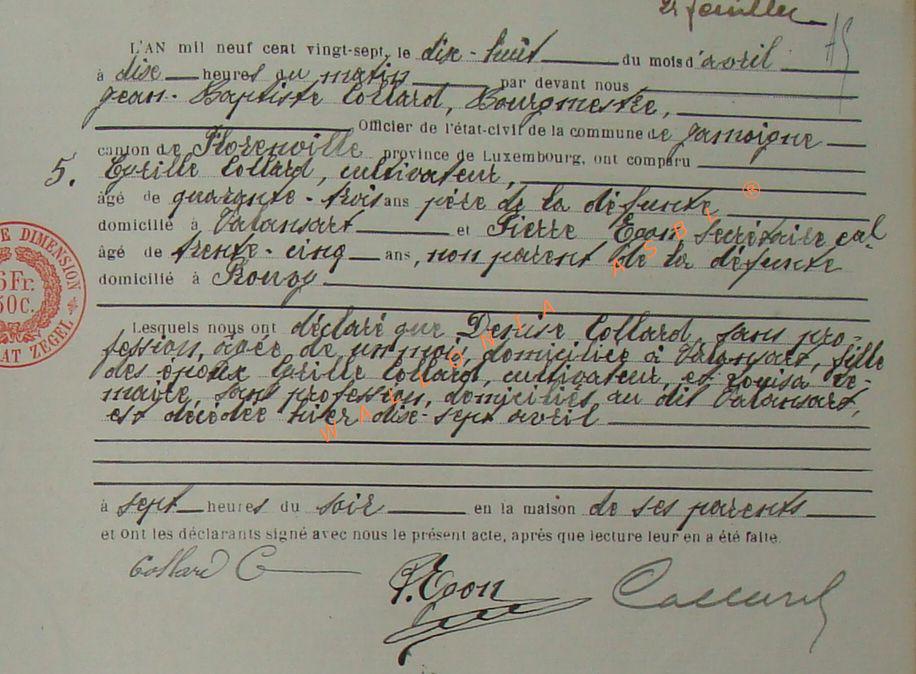 2 feuillet
L'AN mil neuf cent vingt-sept, le dix-huit du mois d'avril
à dix heures du matin par devant nous
Jean-Baptiste Collard, Bourgmestre,
Officier de l'état-civil de la commune de Jamoigne
canton de Florenville province de Luxembourg, ont comparu
5. Cyrille Collard, cultivateur,
âgé de quarante-trois ans père de la défunte
domicilié à Valansart et Pierre Egon Secrétaire cal
âgé de trente-cinq ans, non parent de la défunte
domicilié à Rouzy
E DIMENSION
6Fr.
50C.
AT ZEGEL
Lesquels nous ont déclaré que Denise Collard, sans pro-
fession, âgée de un moi, domiciliée à Valansart, fille
des époux Cyrille Collard, cultivateur, et Louisa Le-
maire, sans profession, domiciliés au dit Valansart,
est décédée hier dix-sept avril
à sept heures du soir en la maison de ses parents
et ont les déclarants signé avec nous le présent acte, après que lecture leur en a été faite.
Collard C
P. Egon
Collard
WALLONIA ASBL ®